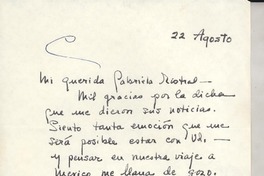 22 Agosto
Mi querida Gabriela Mistral —
Mil gracias por la dicha
que me dieron sus noticias.
Siento tanta emoción que me
será posible estar con Ud.
— y pensar en nuestra viaje a
Mexico me llena de gozo.